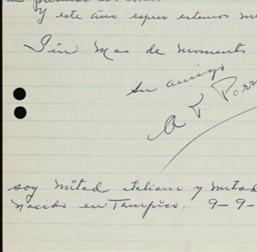 Y este año espero estemos
Sin mas de momento
su amigo
soy mitad italiano y mitad
Nacido en Tampico. 9-9-